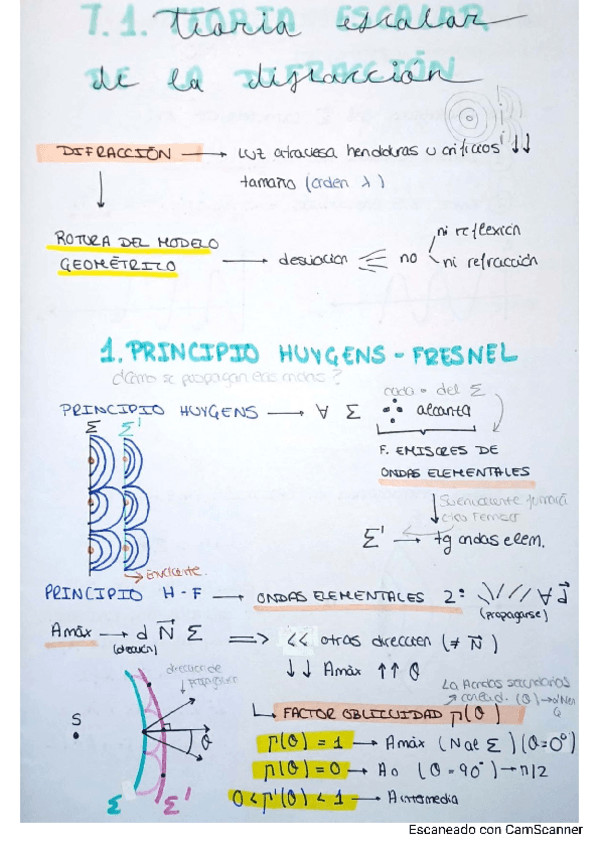 7.1. Teoria ESCALAR
de la DIFRACCIÓN
DIFRACCIÓN → LUZ atraviesa hendiduras u orificios ↓↓
tamaño (orden λ)
ROTURA DEL MODELO
GEOMÉTRICO → desviación no ni reflexión
ni refracción
1. PRINCIPIO HUYGENS - FRESNEL
¿Cómo se propagan las ondas?
PRINCIPIO HUYGENS → ∀ Σ cada • del Σ
alcanza
Σ Σ'
F. EMISORES DE
ONDAS ELEMENTALES
Σ' → tg ondas elem.
Envolvente.
PRINCIPIO H-F → ONDAS ELEMENTALES 2: ∀ d
(propagarse)
Amáx → d N Σ ⟹ << otras direccien (≠ N)
(dirección)
↓↓ Amáx ↑↑ θ
dirección de
propagación
La Ondas secundarias
FACTOR OBLICUIDAD Γ(θ)
S
θ
Γ(θ) = 1 → Amáx (N al Σ) (θ=0°)
Γ(θ) = 0 → A0 (θ = 90°) → π/2
0 < Γ(θ) < 1 → A intermedia
Σ Σ'
Escaneado con CamScanner